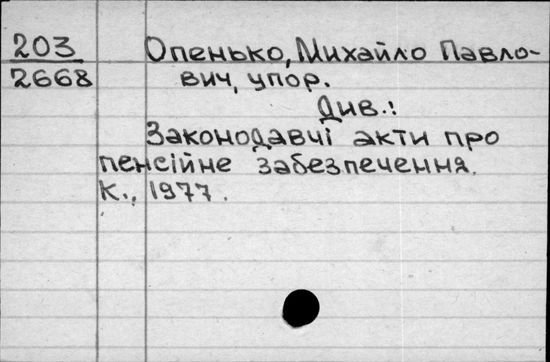 203
2668
Опенько, Михайло Павло-
вич, упор.
Див.:
Законодавчі акти про
пенсійне забезпечення.
К., 1977.